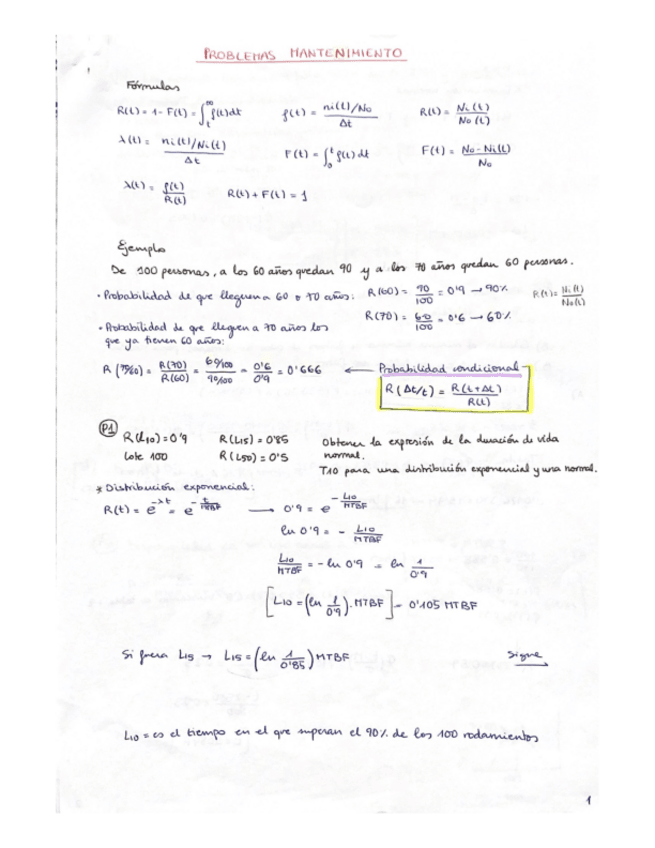 PROBLEMAS MANTENIMIENTO
Fórmulas
R(t) = 1 - F(t) = ∫_t^∞ f(t)dt    f(t) = ni(t)/No / Δt    R(t) = Ni(t) / No(t)
λ(t) = ni(t)/Ni(t) / Δt    F(t) = ∫_0^t f(t) dt    F(t) = No - Ni(t) / No
λ(t) = f(t) / R(t)    R(t) + F(t) = 1
Ejemplo
De 100 personas, a los 60 años quedan 90 y a los 70 años quedan 60 personas.
• Probabilidad de que lleguen a 60 o 70 años: R(60) = 90/100 = 0'9 → 90%    R(t) = Ni(t) / No(t)
R(70) = 60/100 = 0'6 → 60%
• Probabilidad de que lleguen a 70 años los
que ya tienen 60 años:
R(70/60) = R(70)/R(60) = 60/100 / 90/100 = 0'6/0'9 = 0'666 ← Probabilidad condicional
R(Δt/t) = R(t+Δt) / R(t)
P1 R(L10) = 0'9    R(L15) = 0'85    Obtener la expresión de la duración de vida
lote 100    R(L50) = 0'5    normal.
T10 para una distribución exponencial y una normal.
* Distribución exponencial:
R(t) = e^-λt = e^-t/MTBF → 0'9 = e^-L10/MTBF
ln 0'9 = - L10/MTBF
L10/MTBF = - ln 0'9 = ln 1/0'9
[L10 = (ln 1/0'9) · MTBF] = 0'105 MTBF
Si fuera L15 → L15 = (ln 1/0'85) MTBF    Sigue
L10 = es el tiempo en el que superan el 90% de los 100 rodamientos
1